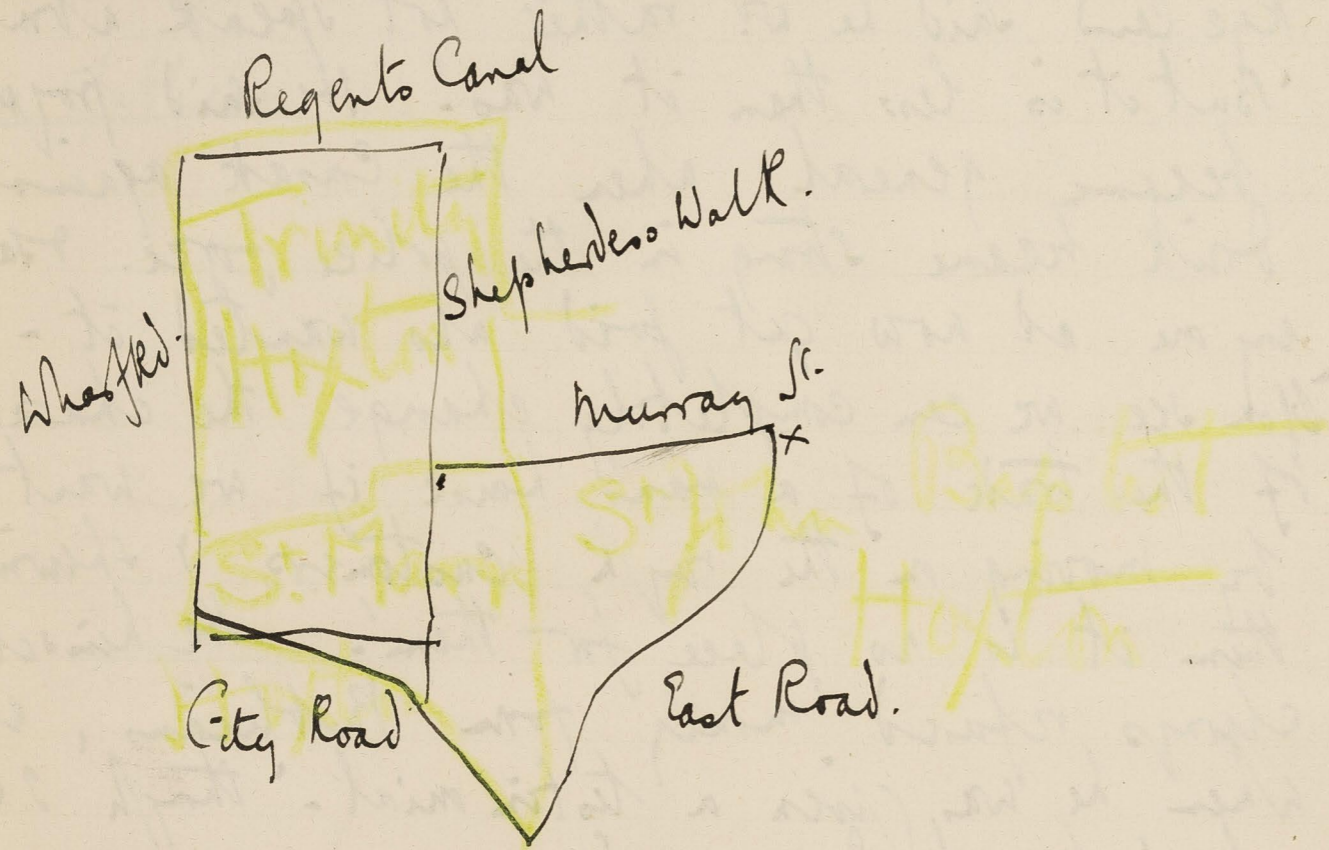 Regents Canal
Trinity
Hoxton
Shepherdess Walk.
Wharf Rd.
Murray St.
x
St John Baptist
Hoxton
St. Mary
Hoxton
City Road
East Road.